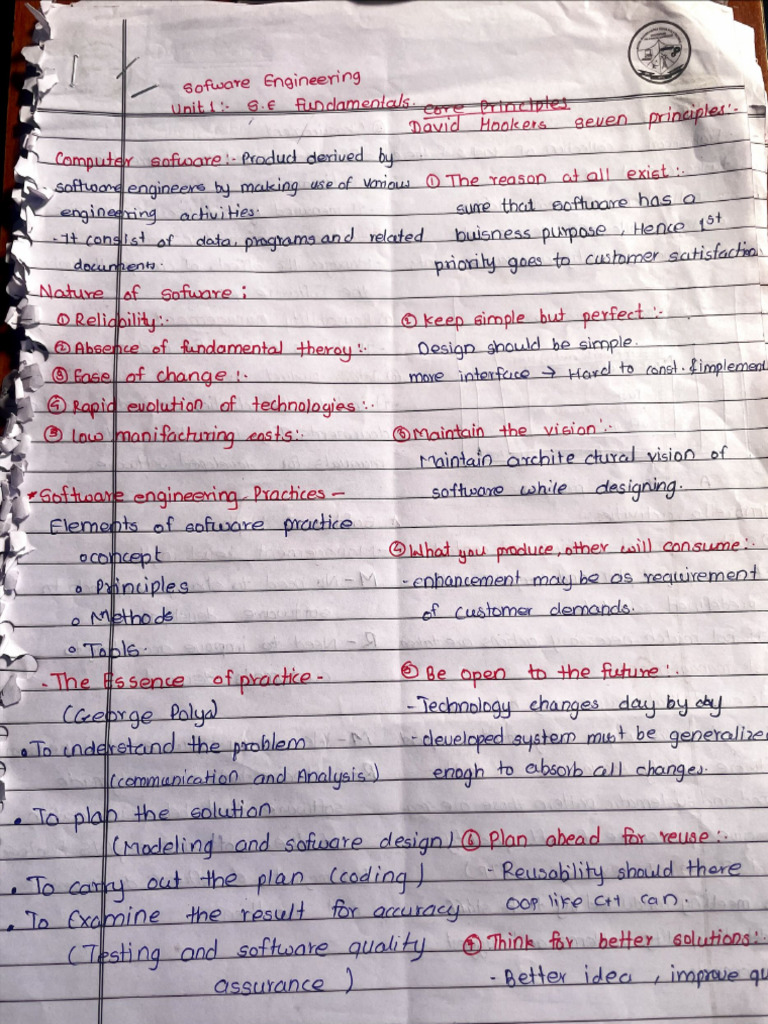 Sofware Engineering
Unit 1:- S.E fundamentals.
Computer sofware:- Product derived by
software engineers by making use of various
engineering activities.
- It consist of data, programs and related
documents.
Nature of sofware;
① Reliability:-
② Absence of fundamental theroy:-
③ Ease of change:-
④ Rapid evolution of technologies:-
⑤ Low manifacturing costs:-
*Software engineering Practices-
Elements of sofware practice
o concept
o Principles
o Methods
o Tools.
- The Essence of practice -
(George Polya)
• To understand the problem
(communication and Analysis)
• To plan the solution
(Modeling and sofware design)
• To carry out the plan (coding)
• To Examine the result for accuracy
(Testing and software quality
assurance)
Core Principles
David Hookers seven principles:-
① The reason at all exist:-
sure that software has a
buisness purpose, Hence 1st
priority goes to customer satisfaction
② keep simple but perfect:-
Design should be simple.
more interface → Hard to const. & implement
③ Maintain the vision:-
Maintain archite ctural vision of
software while designing.
④ What you produce, other will consume:-
- enhancement may be as requirement
of customer demands.
⑤ Be open to the future:-
- Technology changes day by day
- developed system must be generalize
enogh to absorb all changes.
⑥ Plan ahead for reuse:-
- Reusability should there
OOP like C++ can.
⑦ Think for better solutions:-
- Better idea, improve qu